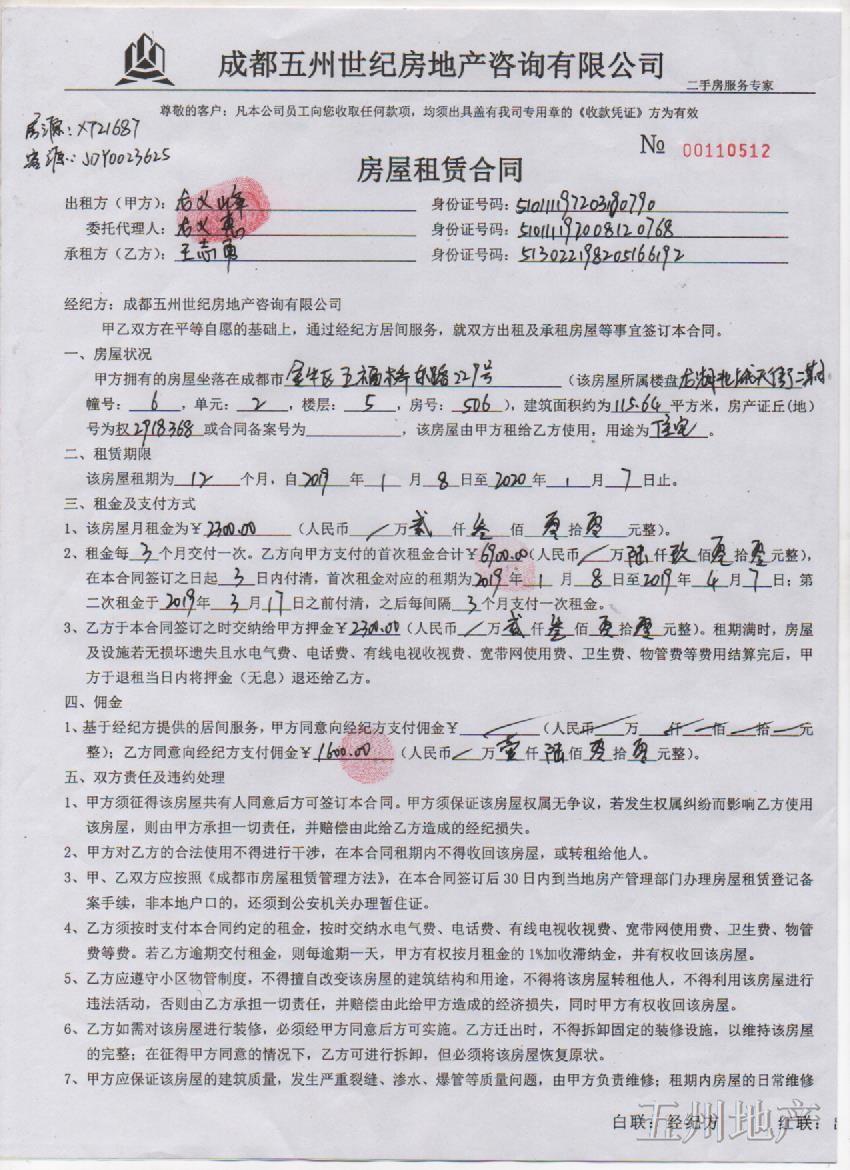 成都五州世纪房地产咨询有限公司
二手房服务专家
尊敬的客户：凡本公司员工向您收取任何款项，均须出具盖有我司专用章的《收款凭证》方为有效
房源：XT21687
客源：JDY0023625
№ 00110512
房屋租赁合同
出租方（甲方）： 身份证号码：510111197203180790
委托代理人： 身份证号码：510111192008120768
承租方（乙方）：王志勇 身份证号码：513022198205166192
经纪方：成都五州世纪房地产咨询有限公司
甲乙双方在平等自愿的基础上，通过经纪方居间服务，就双方出租及承租房屋等事宜签订本合同。
一、房屋状况
甲方拥有的房屋坐落在成都市金牛区五福桥东路229号（该房屋所属楼盘龙湖北城天街二期
幢号：6，单元：2，楼层：5，房号：506），建筑面积约为115.64平方米，房产证丘(地)
号为权2918368或合同备案号为 ，该房屋由甲方租给乙方使用，用途为住宅。
二、租赁期限
该房屋租期为12个月，自2019年1月8日至2020年1月7日止。
三、租金及支付方式
1、该房屋月租金为￥2300.00（人民币/万贰仟叁佰零拾零元整）。
2、租金每3个月交付一次。乙方向甲方支付的首次租金合计￥6900.00（人民币/万陆仟玖佰零拾零元整），
在本合同签订之日起3日内付清，首次租金对应的租期为2019年1月8日至2019年4月7日；第
二次租金于2019年3月17日之前付清，之后每间隔3个月支付一次租金。
3、乙方于本合同签订之时交纳给甲方押金￥2300.00（人民币/万贰仟叁佰零拾零元整）。租期满时，房屋
及设施若无损坏遗失且水电气费、电话费、有线电视收视费、宽带网使用费、卫生费、物管费等费用结算完后，甲
方于退租当日内将押金（无息）退还给乙方。
四、佣金
1、基于经纪方提供的居间服务，甲方同意向经纪方支付佣金￥/（人民币/万/仟/佰/拾/元
整）；乙方同意向经纪方支付佣金￥1600.00（人民币/万壹仟陆佰零拾零元整）。
五、双方责任及违约处理
1、甲方须征得该房屋共有人同意后方可签订本合同。甲方须保证该房屋权属无争议，若发生权属纠纷而影响乙方使用
该房屋，则由甲方承担一切责任，并赔偿由此给乙方造成的经纪损失。
2、甲方对乙方的合法使用不得进行干涉，在本合同租期内不得收回该房屋，或转租给他人。
3、甲、乙双方应按照《成都市房屋租赁管理方法》，在本合同签订后30日内到当地房产管理部门办理房屋租赁登记备
案手续，非本地户口的，还须到公安机关办理暂住证。
4、乙方须按时支付本合同约定的租金，按时交纳水电气费、电话费、有线电视收视费、宽带网使用费、卫生费、物管
费等费。若乙方逾期交付租金，则每逾期一天，甲方有权按月租金的1%加收滞纳金，并有权收回该房屋。
5、乙方应遵守小区物管制度，不得擅自改变该房屋的建筑结构和用途，不得将该房屋转租他人，不得利用该房屋进行
违法活动，否则由乙方承担一切责任，并赔偿由此给甲方造成的经济损失，同时甲方有权收回该房屋。
6、乙方如需对该房屋进行装修，必须经甲方同意后方可实施。乙方迁出时，不得拆卸固定的装修设施，以维持该房屋
的完整；在征得甲方同意的情况下，乙方可进行拆卸，但必须将该房屋恢复原状。
7、甲方应保证该房屋的建筑质量，发生严重裂缝、渗水、爆管等质量问题，由甲方负责维修；租期内房屋的日常维修
白联：经纪方 红联：
五州地产